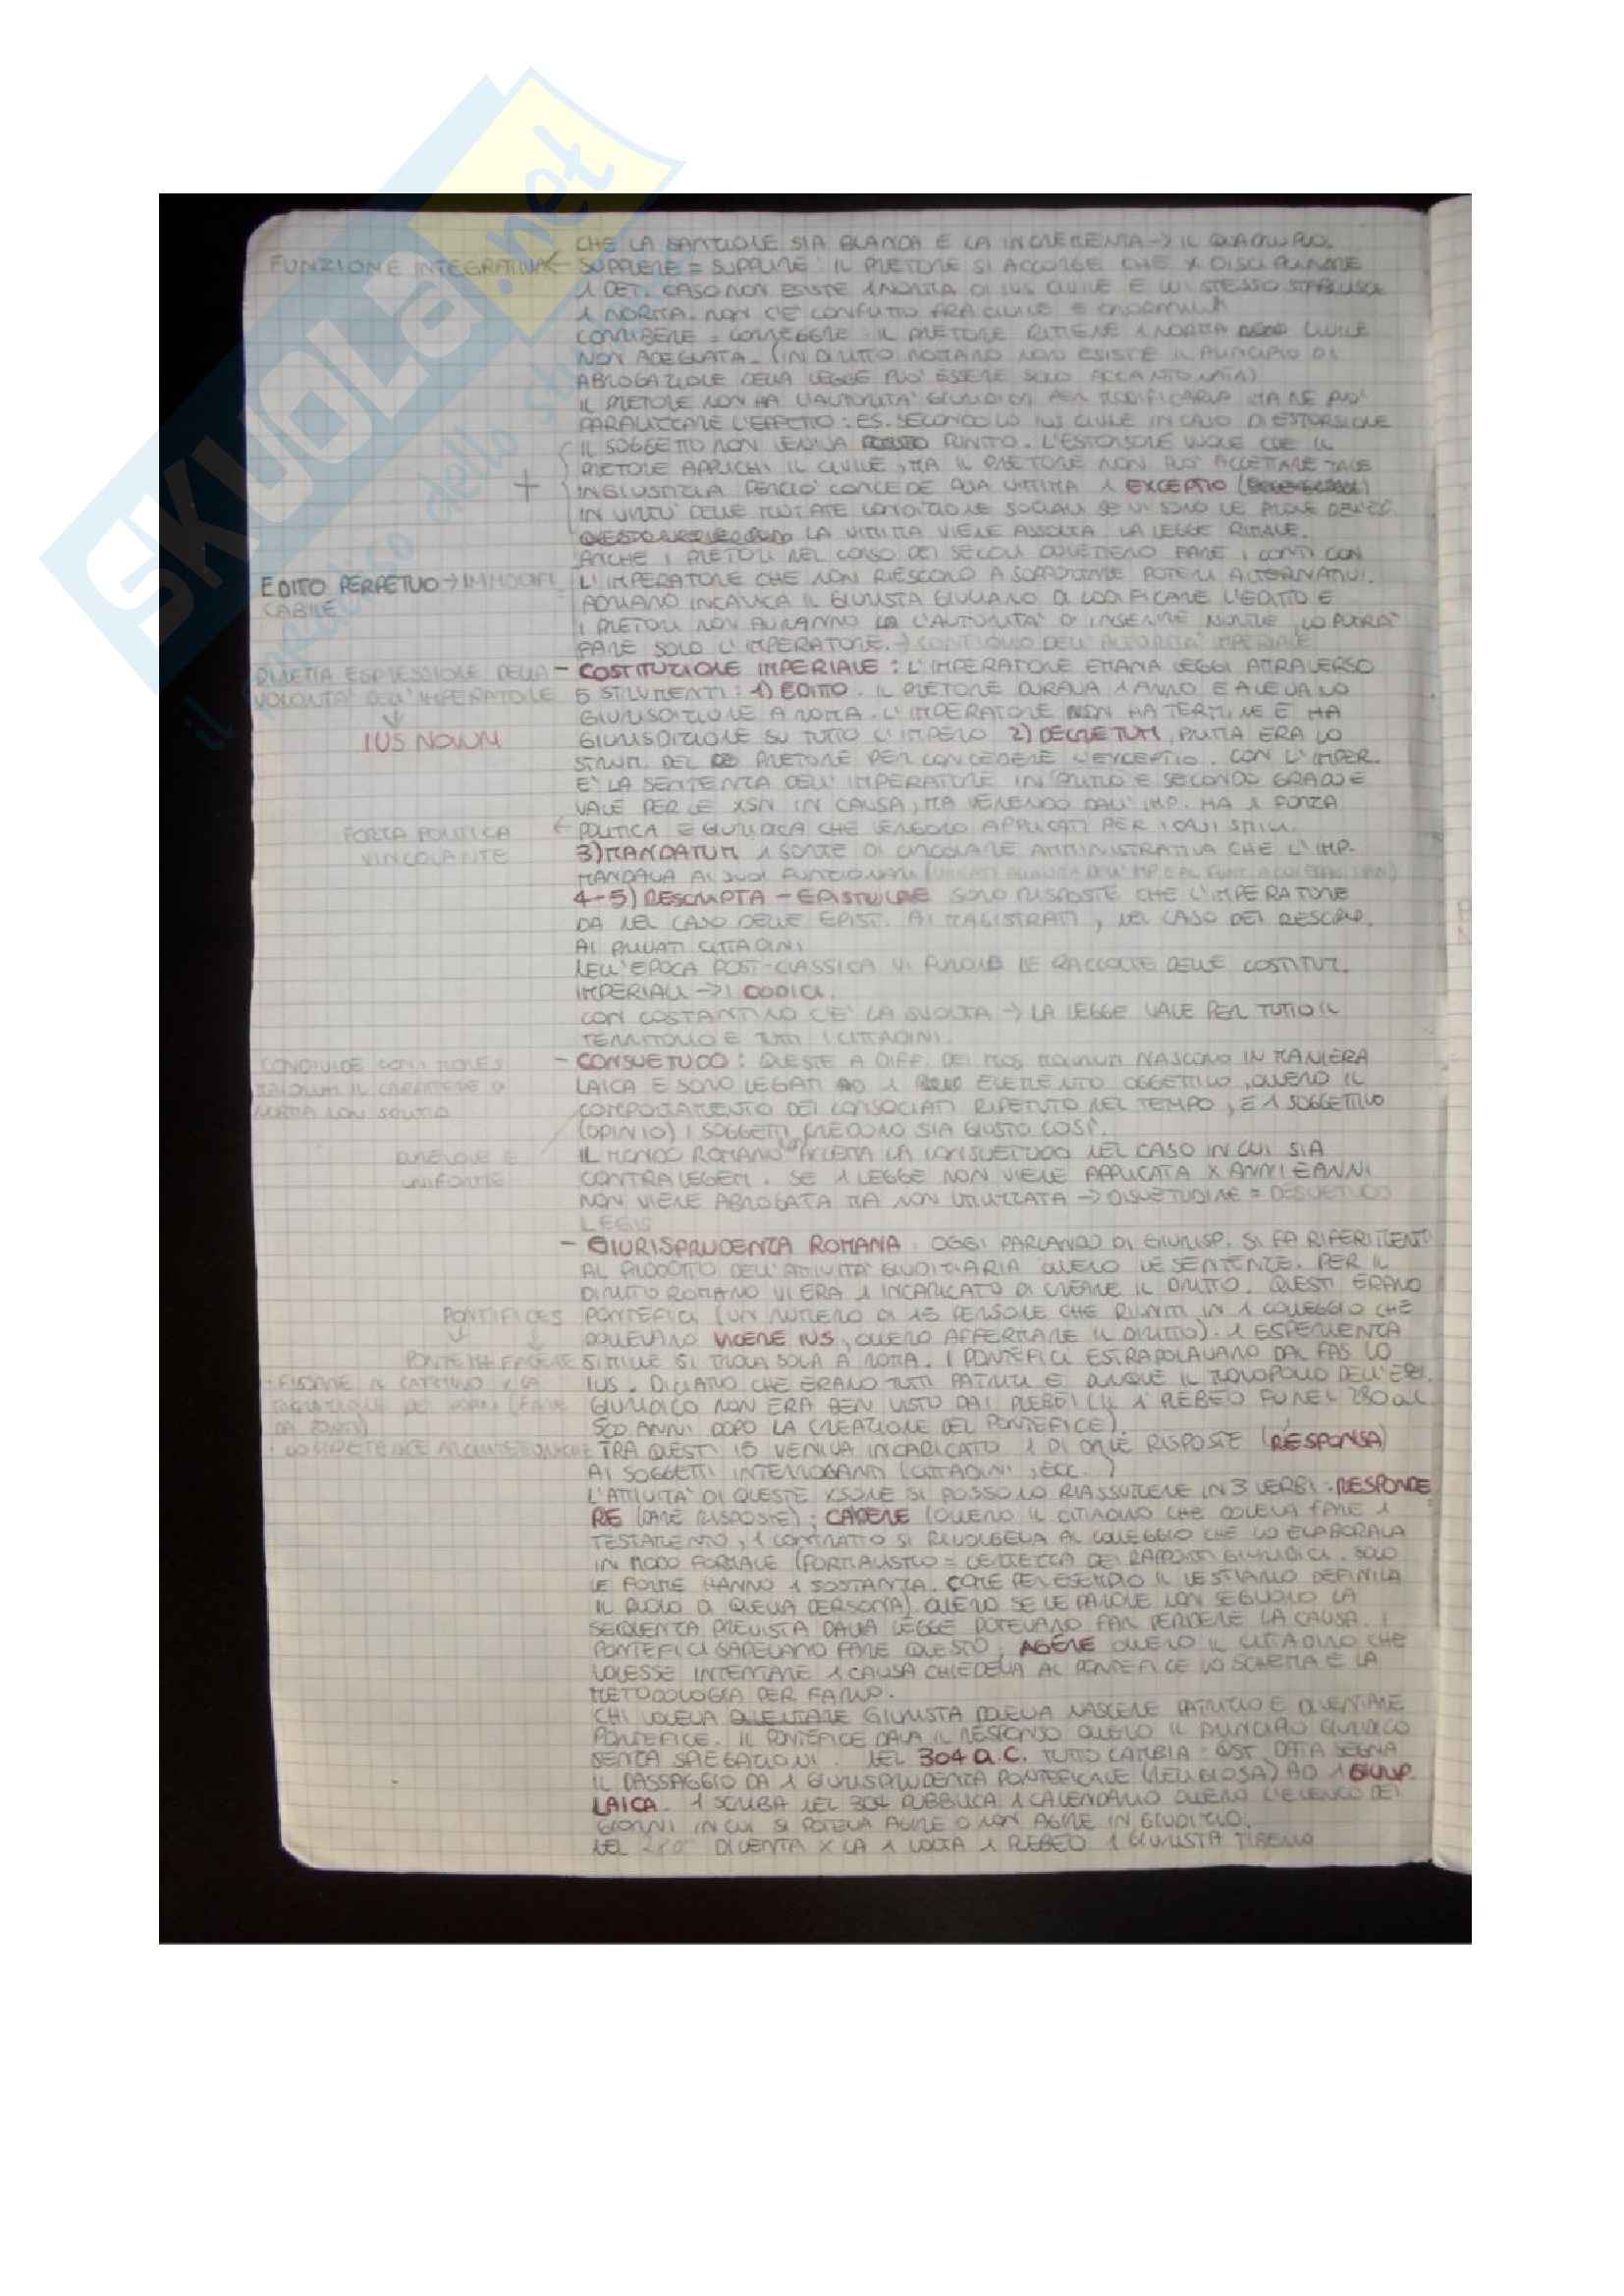 CHE LA SANZIONE SIA BLANDA E LA INCREMENTA → IL QUADRUPLO.
FUNZIONE INTEGRATIVA ← SUPPLERE = SUPPLIRE: IL PRETORE SI ACCORGE CHE X DISCIPLINARE
1 DET. CASO NON ESISTE 1 NORMA DI IUS CIVILE E LUI STESSO STABILISCE
1 NORMA. NON C'È CONFLITTO FRA CIVILE E
CORRIGERE = CORREGGERE: IL PRETORE RITIENE 1 NORMA CIVILE
NON ADEGUATA. (IN DIRITTO ROMANO NON ESISTE IL PRINCIPIO DI
ABROGAZIONE DELLA LEGGE PUÒ ESSERE SOLO ACCANTONATA)
IL PRETORE NON HA L'AUTORITÀ GIURIDICA PER MODIFICARLA MA NE PUÒ
PARALIZZARE L'EFFETTO: ES. SECONDO LO IUS CIVILE IN CASO DI ESTORSIONE
IL SOGGETTO NON VENIVA PUNITO. L'ESTORSORE VUOLE CHE IL
PRETORE APPLICHI IL CIVILE, MA IL PRETORE NON PUÒ ACCETTARE TALE
+ INGIUSTIZIA PERCIÒ CONCEDE ALLA VITTIMA 1 EXCEPTIO
IN VIRTÙ DELLE MUTATE CONDIZIONE SOCIALI SE VI SONO LE PROVE
LA VITTIMA VIENE ASSOLTA. LA LEGGE RIMANE.
ANCHE I PRETORI NEL CORSO DEI SECOLI DOVETTERO FARE I CONTI CON
EDITO PERPETUO → IMMODIFI L'IMPERATORE CHE NON RIESCONO A SOPPORTARE POTERI ALTERNATIVI.
CABILE ADRIANO INCARICA IL GIURISTA GIULIANO DI CODIFICARE L'EDITTO E
I PRETORI NON AVRANNO L'AUTORITÀ DI INSERIRE NORME, LO POTRÀ
FARE SOLO L'IMPERATORE. → CONTROLLO DELL'AUTORITÀ IMPERIALE
DIRETTA ESPRESSIONE DELLA - COSTITUZIONE IMPERIALE: L'IMPERATORE EMANA LEGGI ATTRAVERSO
VOLONTÀ DELL'IMPERATORE 5 STRUMENTI: 1) EDITTO. IL PRETORE DURAVA 1 ANNO E AVEVA LO
↓ GIURISDIZIONE A ROMA. L'IMPERATORE NON HA TERMINE E HA
IUS NOVUM GIURISDIZIONE SU TUTTO L'IMPERO 2) DECRETUM, PRIMA ERA LO
STRUM. DEL PRETORE PER CONCEDERE L'EXCEPTIO. CON L'IMPER.
È LA SENTENZA DELL'IMPERATORE IN PRIMO E SECONDO GRADO E
VALE PER LE XSN IN CAUSA, MA VENENDO DALL'IMP. HA 1 FORZA
FORZA POLITICA ← POLITICA E GIURIDICA CHE VENGONO APPLICATI PER I CASI SIMILI.
VINCOLANTE 3) MANDATUM 1 SORTE DI CIRCOLARE AMMINISTRATIVA CHE L'IMP.
MANDAVA AI SUOI FUNZIONARI
4-5) RESCRIPTA - EPISTULAE SONO RISPOSTE CHE L'IMPERATORE
DA NEL CASO DELLE EPIST. AI MAGISTRATI, NEL CASO DEI RESCRIP.
AI PRIVATI CITTADINI
NELL'EPOCA POST-CLASSICA VI FURONO LE RACCOLTE DELLE COSTITUZ.
IMPERIALI → I CODICI.
CON COSTANTINO C'È LA SVOLTA → LA LEGGE VALE PER TUTTO IL
TERRITORIO E TUTTI I CITTADINI.
CONDIVIDE CON I MORES - CONSUETUDO: QUESTE A DIFF. DEI MOS MAIORUM NASCONO IN MANIERA
MAIORUM IL CARATTERE DI LAICA E SONO LEGATI AD 1 ELEMENTO OGGETTIVO, OVVERO IL
NORMA NON SCRITTA COMPORTAMENTO DEI CONSOCIATI RIPETUTO NEL TEMPO, E 1 SOGGETTIVO
(OPINIO) I SOGGETTI CREDONO SIA GIUSTO COSÌ.
UNIFORME IL MONDO ROMANO NON ACCETTA LA CONSUETUDO NEL CASO IN CUI SIA
CONTRA LEGEM. SE 1 LEGGE NON VIENE APPLICATA X ANNI E ANNI
NON VIENE ABROGATA MA NON UTILIZZATA → DISUETUDINE = DESUETUDO
LEGIS
- GIURISPRUDENZA ROMANA: OGGI PARLANDO DI GIURISP. SI FA RIFERIMENTO
AL PRODOTTO DELL'ATTIVITÀ GIUDIZIARIA OVVERO LE SENTENZE. PER IL
DIRITTO ROMANO VI ERA 1 INCARICATO DI CREARE IL DIRITTO. QUESTI ERANO
PONTIFICES PONTEFICI (UN NUMERO DI 15 PERSONE CHE RIUNITI IN 1 COLLEGIO CHE
↓ ↓ DOVEVANO DICERE IUS, OVVERO AFFERMARE IL DIRITTO). 1 ESPERIENZA
PONTEM FACERE SIMILE SI TROVA SOLA A ROMA. I PONTEFICI ESTRAPOLAVANO DAL FAS LO
IUS. DICIAMO CHE ERANO TUTTI PATRIZI E DUNQUE IL MONOPOLIO DELL'ESP.
GIURIDICO NON ERA BEN VISTO DAI PLEBEI (IL 1 PLEBEO FU NEL 280 a.C.
500 ANNI DOPO LA CREAZIONE DEL PONTEFICE).
COMPETENZE ARCHITETTONICHE TRA QUESTI 15 VENIVA INCARICATO 1 DI DARE RISPOSTE (RESPONSA)
AI SOGGETTI INTERROGANTI (CITTADINI, ECC.)
L'ATTIVITÀ DI QUESTE XSONE SI POSSONO RIASSUMERE IN 3 VERBI: RESPONDE
RE (DARE RISPOSTE); CAVERE (OVVERO IL CITTADINO CHE VOLEVA FARE 1
TESTAMENTO, 1 CONTRATTO SI RIVOLGEVA AL COLLEGIO CHE LO ELABORAVA
IN MODO FORMALE (FORMALISMO = CERTEZZA DEI RAPPORTI GIURIDICI. SOLO
LE FORME HANNO 1 SOSTANZA. COME PER ESEMPIO IL VESTIARIO DEFINIVA
IL RUOLO DI QUELLA PERSONA) OVVERO SE LE PAROLE NON SEGUONO LA
SEQUENZA PREVISTA DALLA LEGGE POTEVANO FAR PERDERE LA CAUSA. I
PONTEFICI SAPEVANO FARE QUESTO; AGERE OVVERO IL CITTADINO CHE
VOLESSE INTENTARE 1 CAUSA CHIEDEVA AL PONTEFICE LO SCHEMA E LA
METODOLOGIA PER FARLO.
CHI VOLEVA DIVENTARE GIURISTA DOVEVA NASCERE PATRIZIO E DIVENTARE
PONTEFICE. IL PONTEFICE DAVA IL RESPONSO OVVERO IL PRINCIPIO GIURIDICO
SENZA SPIEGAZIONI. NEL 304 a.C. TUTTO CAMBIA: QST DATA SEGNA
IL PASSAGGIO DA 1 GIURISPRUDENZA PONTEFICALE (RELIGIOSA) AD 1 GIURISP.
LAICA. 1 SCRIBA NEL 304 PUBBLICA 1 CALENDARIO OVVERO L'ELENCO DEI
GIORNI IN CUI SI POTEVA AGIRE O NON AGIRE IN GIUDIZIO.
NEL 280 DIVENTA X LA 1 VOLTA 1 PLEBEO 1 GIURISTA
SKUOLA.net
il dello